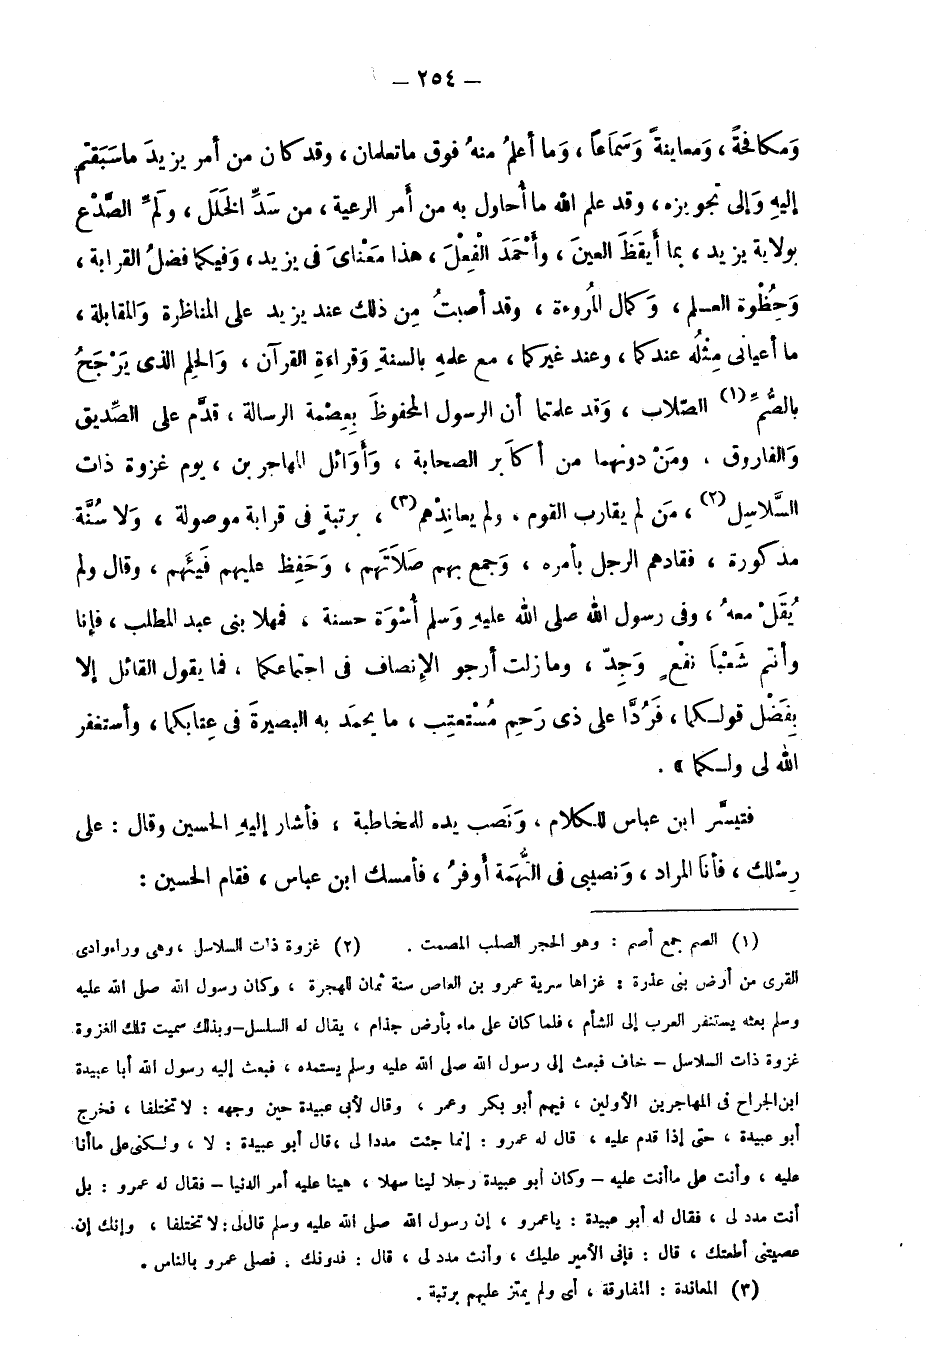 — ٢٥٤ —
وَمكافحَةً ، وَمعاينةً وَسَمَاعًا ، وَما أعلمُ منهُ فوق ماتعلمان ، وقد كان من أمر يزيدَ ماسَبَقتم
إليهِ وَإلى تجويزه ، وقد علم الله ما أُحاول به من أمر الرعية ، من سَدِّ الخَلَل ، ولَمِّ الصَّدْع
بولاية يزيد ، بما أَيقَظَ العينَ ، وأَحْمَدَ الْفِعْلَ ، هذا مَعْنَاىَ فى يزيد ، وَفيكما فضلُ القرابة ،
وَحُظْوة العـلم ، وَكمال المُروءة ، وقد أصبتُ مِن ذلك عند يزيد على المناظرة وَالمقابلة ،
ما أعيانى مِثْلُه عندكما ، وعند غيركما ، مع علمهِ بالسنةِ وَقراءةِ القرآن ، وَالحِلِم الذى يَرْجَحُ
بالصُّمِّ (١) الصِّلاب ، وَقد علمتما أن الرسول المحفوظَ بِعِصْمة الرسالة ، قدَّم على الصِّديق
وَالفاروق ، ومَنْ دونهما من أكابر الصحابة ، وَأَوَائل المهاجرين ، يوم غزوة ذات
السَّلاسِل (٢) ، مَن لم يقارب القوم ، ولم يعانِدْهم (٣) ، برتبةٍ فى قرابة موصولة ، وَلا سُنَّة
مذكورة ، فقادهم الرجل بأمره ، وَجمع بهم صَلَاتَهم ، وَحَفِظ عليهم فَيئَهم ، وقال ولم
يُقَلْ معهُ ، وفى رسول الله صلى الله عليهِ وَسلم أُسْوَة حسنة ، فمهلا بنى عبد المطلب ، فإنا
وأنتم شَعْبَا نفْعٍ وَجِدّ ، ومازلت أرجو الإنصاف فى اجتماعكما ، فما يقول القائل إلا
بِفَضْل قولـكما ، فَرُدَّا على ذى رَحِمٍ مُسْتَعتِب ، ما يحمَد به البصيرةَ فى عِتابكما ، وأستغفر
الله لى ولـكما » .
فتيسَّر ابن عباس للـكلام ، وَنَصب يده للمخاطبة ، فأشار إليهِ الحسين وقال : على
رِسْلك ، فأنَا المراد ، وَنصيبى فى التُّهَمَة أَوفرُ ، فأمسك ابن عباس ، فقام الحسين :
(١) الصم جمع أصم : وهو الحجر الصلب المصمت . (٢) غزوة ذات السلاسل ، وهى وراء وادى
القرى من أرض بنى عذرة : غزاها سرية عمرو بن العاص سنة ثمان للهجرة ، وكان رسول الله صلى الله عليه
وسلم بعثه يستنفر العرب إلى الشأم ، فلما كان على ماء بأرض جذام ، يقال له السلسل–وبذلك سميت تلك الغزوة
غزوة ذات السلاسل – خاف فبعث إلى رسول الله صلى الله عليه وسلم يستمده ، فبعث إليه رسول الله أبا عبيدة
ابن الجراح فى المهاجرين الأولين ، فيهم أبو بكر وعمر ، وقال لأبى عبيدة حين وجهه : لا تختلفا ، فخرج
أبو عبيدة ، حتى إذا قدم عليه ، قال له عمرو : إنما جئت مددا لى ، قال أبو عبيدة : لا ، ولـكنى على ما أنا
عليه ، وأنت على ما أنت عليه – وكان أبو عبيدة رجلا لينا سهلا ، هينا عليه أمر الدنيا – فقال له عمرو : بل
أنت مدد لى ، فقال له أبو عبيدة : يا عمرو ، إن رسول الله صلى الله عليه وسلم قال لى : لا تختلفا ، وإنك إن
عصيتنى أطعتك ، قال : فإنى الأمير عليك ، وأنت مدد لى ، قال : فدونك . فصلى عمرو بالناس .
(٣) المعاندة : المفارقة ، أى ولم يمتز عليهم برتبة .